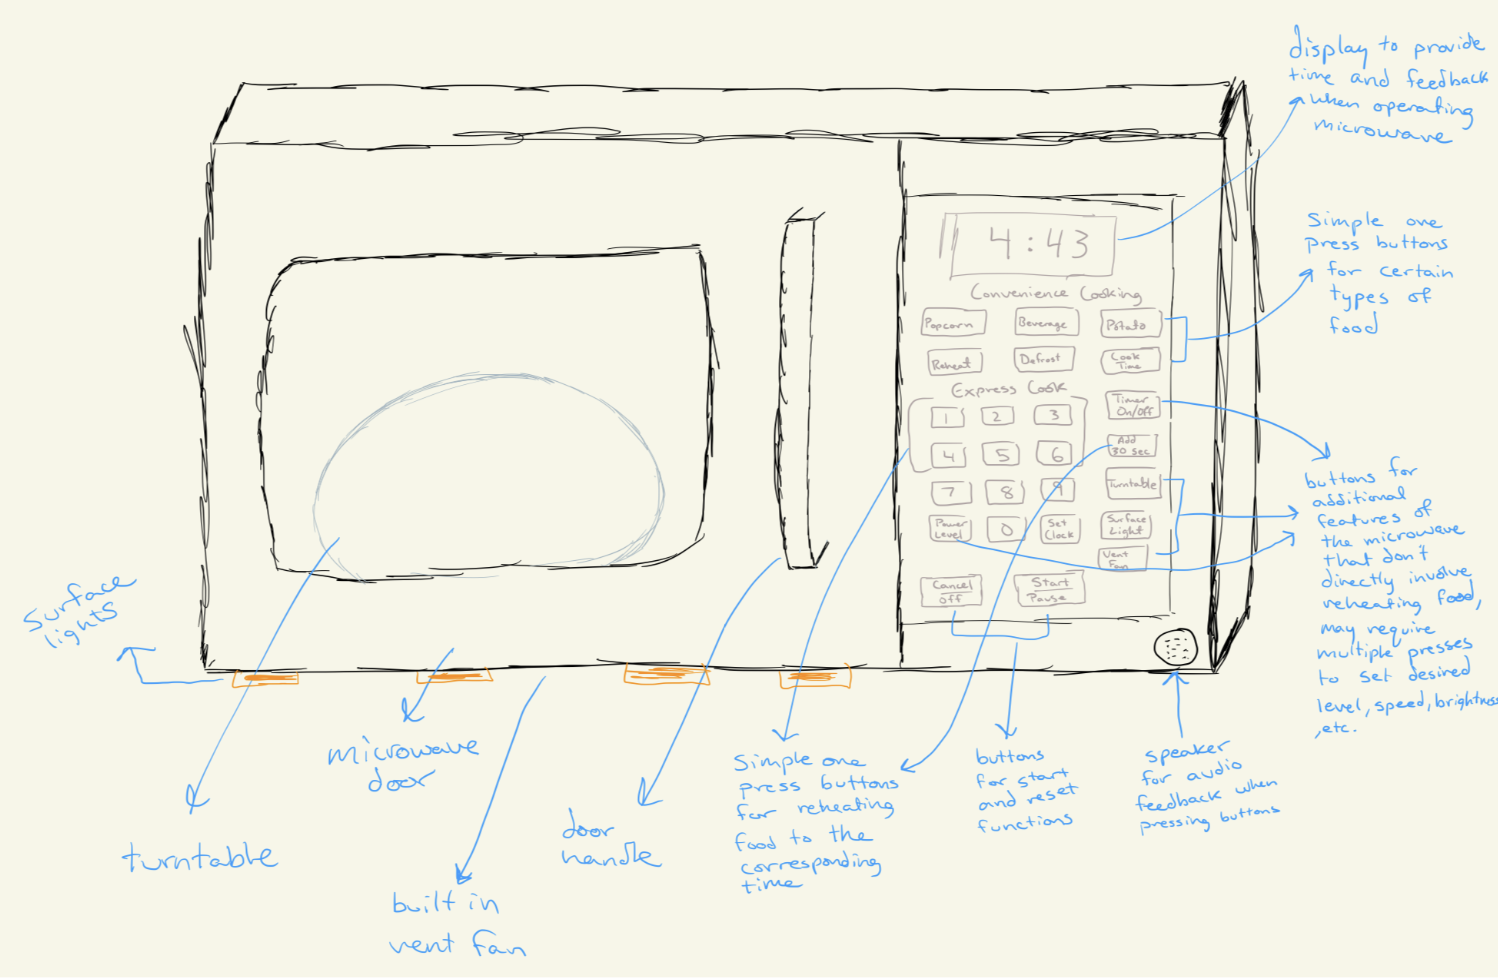 display to provide
time and feedback
when operating
microwave
4:43
Simple one
press buttons
for certain
types of
food
Convenience Cooking
Popcorn
Beverage
Potato
Reheat
Defrost
Cook
Time
Express Cook
Timer
On/Off
1
2
3
Add
30 sec
4
5
6
Turntable
7
8
9
Power
Level
0
Set
Clock
Surface
Light
Vent
Fan
Cancel
Off
Start
Pause
buttons for
additional
features of
the microwave
that don't
directly involve
reheating food,
may require
multiple presses
to set desired
level, speed, brightness
,etc.
Surface
lights
microwave
door
turntable
built in
vent fan
door
handle
Simple one
press buttons
for reheating
food to the
corresponding
time
buttons
for start
and reset
functions
speaker
for audio
feedback when
pressing buttons